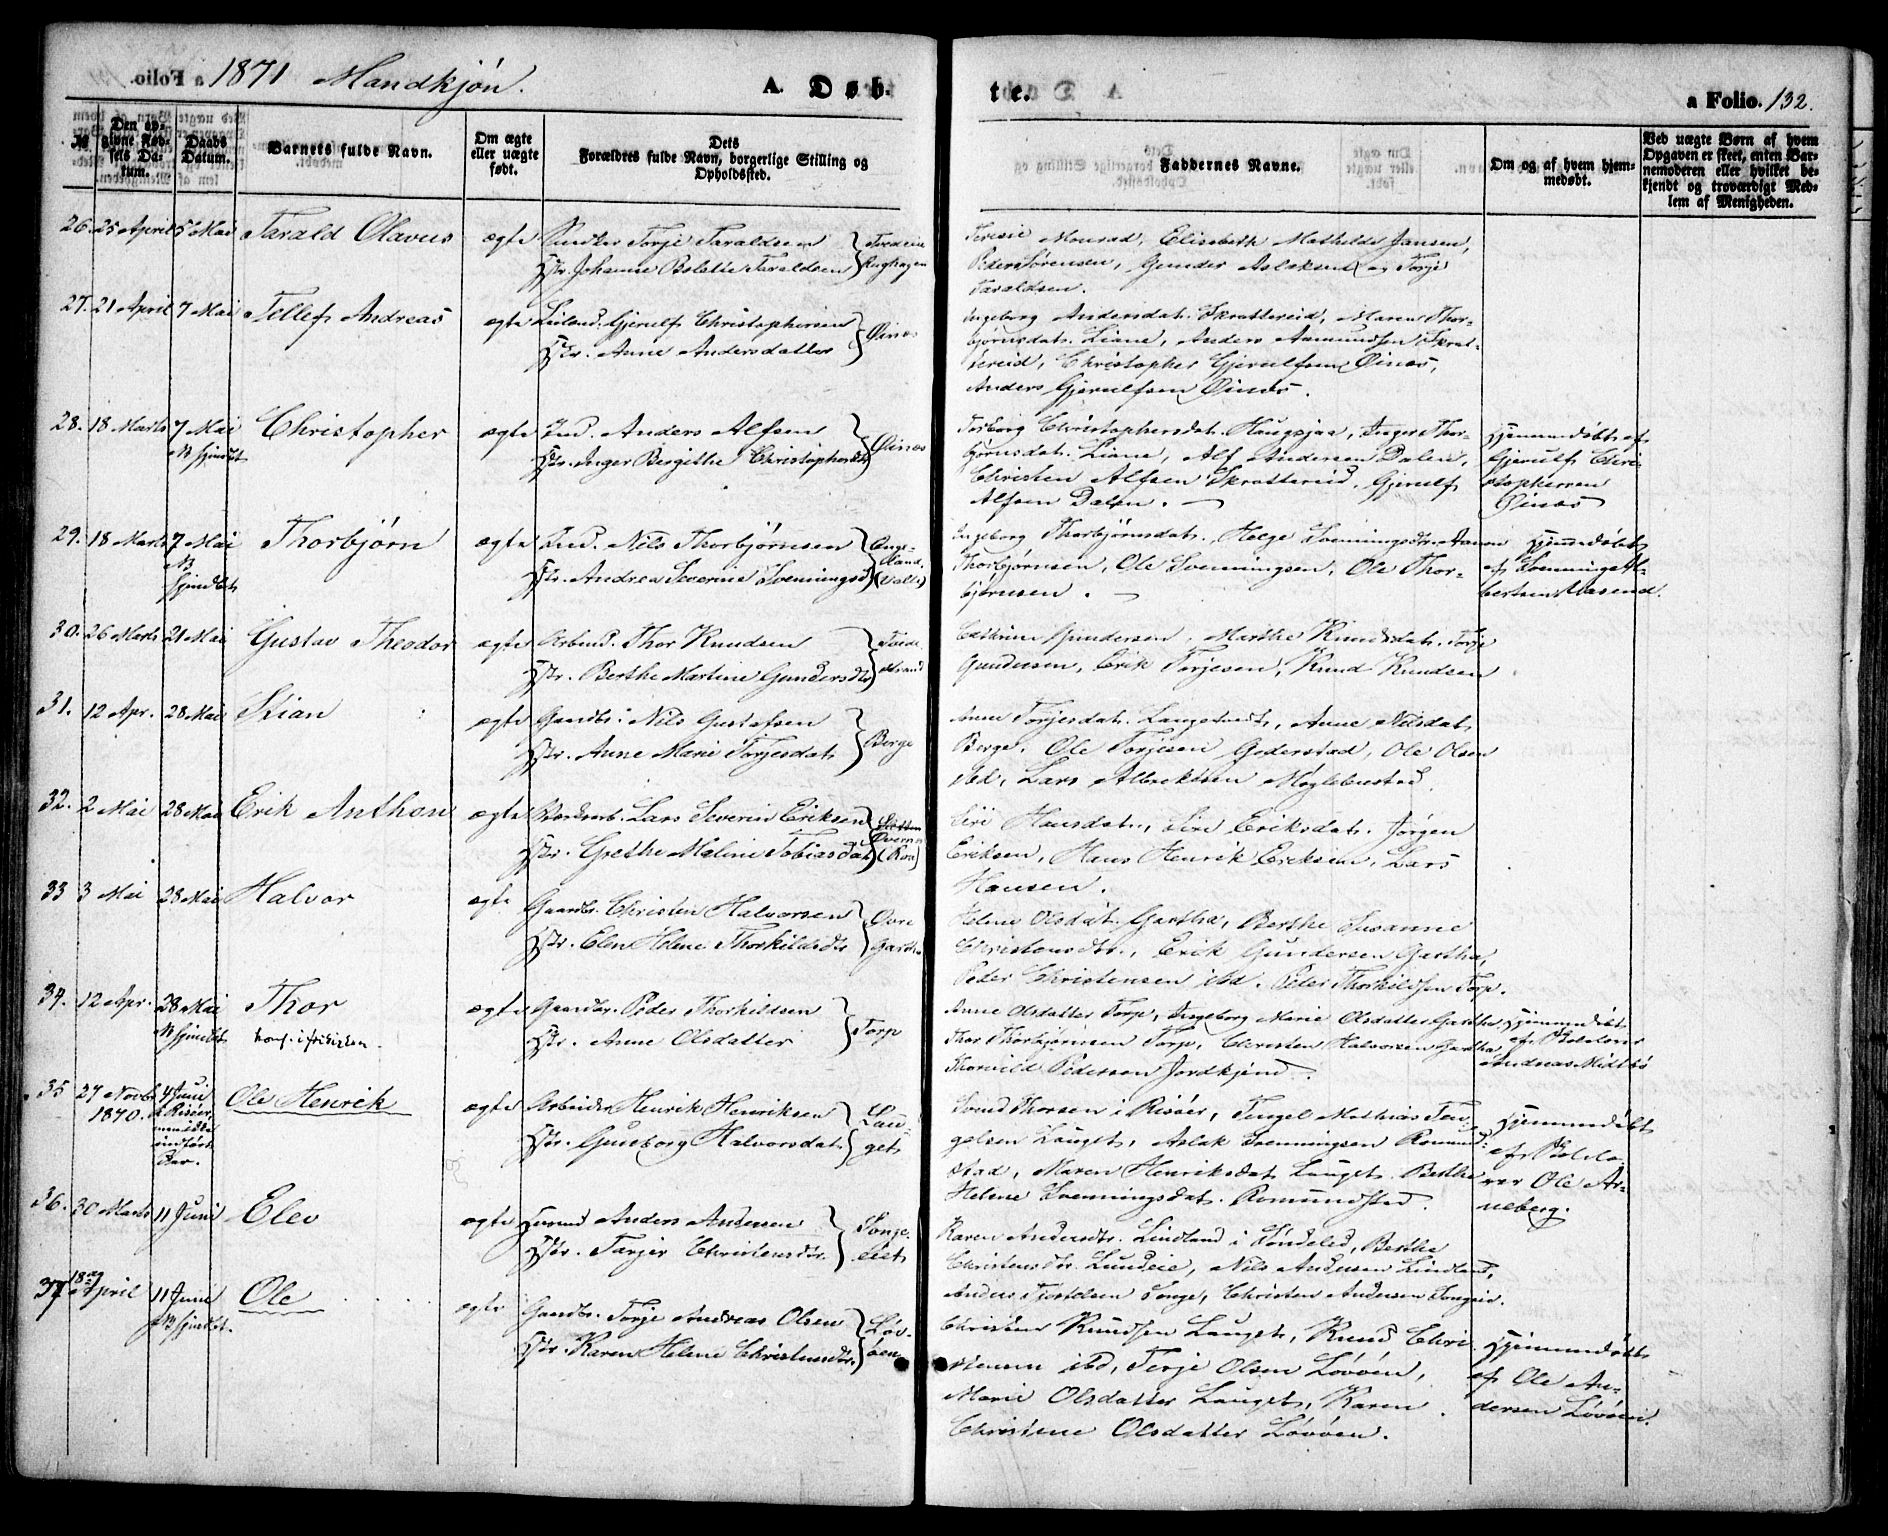 1871 Mandkjøn.
A. Døb
te.
a Folio. 132.
№
Den opgivne Fødsels Datum.
Daabs Datum.
Barnets fulde Navn.
Om ægte eller uægte født.
Dets Forældres fulde Navn, borgerlige Stilling og Opholdssted.
Faddernes Navne.
Om og af hvem hjemmedøbt.
Ved uægte Børn af hvem Opgaven er skeet, enten Barnemoderen eller hvilket bekjendt og troværdigt Medlem af Menigheden.
26. 25 April 5 Mai Tarald Olavus ægte Torje Taraldsen
Hstr. Johanne Bolette Taraldsen
Mourad, Elisabeth Mathilde Jansen,
Peder Sørensen, Gunder Aslaksen og Torje
Taraldsen.
27. 21 April 7 Mai Tellef Andreas ægte Gjerulf Christophersen
Hstr. Anne Andersdatter Øinæs
Ingeborg Andersdat. Skrattereid, Maren Thor-
bjørnsdat. Liane, Anders Aamundsen Skrat-
tereid, Christopher Gjerulfsen Øinæs,
Anders Gjerulfsen Øinæs.
28. 18 Marts 7 Mai Christopher ægte Ind. Anders Alfsen
Hstr. Inger Bergithe Christophersdtr Øinæs
Torborg Christophersdat. Haugsjaa, Inger Thor-
bjørnsdat. Liane, Alf Andersen Dalen,
Christen Alfsen Skrattereid, Gjerulf
Alfsen Dalen.
Hjemmedøbt af
Gjerulf Chri-
stophersen
Øinæs
29. 18 Marts 7 Mai Thorbjørn ægte Ind. Nils Thorbjørnsen
Hstr. Andrea Severine Svenningsd. Ange-
land
(Valle)
Ingeborg Thorbjørnsdat. Helge Svenningsdtr. Aanon
Thorbjørnsen, Ole Svenningsen, Ole Thor-
bjørnsen.
Hjemmedøbt
af Svenning Al-
bertsen Aasend.
30. 26 Marts 21 Mai Gustav Theodor ægte Arbeid. Thor Knudsen
Hstr. Berthe Martine Gundersdtr
Cathrine Gundersen, Marthe Knudsdat. Torje
Gundersen, Erik Torjesen, Knud Knudsen
31. 12 Apr. 28 Mai Stian ægte Gaardbr. Nils Gustafsen
Hstr. Anne Marie Torjesdat. Berge
Anne Torjesdat. Langetvedt, Anne Nilsdat.
Berge, Ole Torjesen Goderstad, Ole Olsen
ibd, Lars Albrektsen Møglebustad.
32. 2 Mai 28 Mai Erik Anthon ægte Lars Severin Eriksen
Hstr. Grethe Maline Tobiasdat.
Siri Hansdat., Sire Eriksdat. Jørgen
Eriksen, Hans Henrik Eriksen, Lars
Hansen.
33 3 Mai 28 Mai Halvor ægte Gaardbr. Christen Halvorsen
Hstr. Elen Helene Thorkildsdtr Øvre
Gartha
Helene Olsdat. Gartha, Berthe Susanne
Christensdtr., Erik Gundersen Gartha,
Peder Christensen ibd. Peter Thorkildsen Torp.
34. 12 Apr. 28 Mai Thor ægte Gaardbr. Peder Thorkildsen
Hstr. Anne Olsdatter Torp
Anne Olsdatter Torp, Ingeborg Marie Olsdatter Gartha
Thor Thorbjørnsen Torp, Christen Halvorsen Gartha,
Thorvild Pedersen Jordkjenn.
Hjemmedøbt
Andreas Midtbø
35 27 Novbr 1870. 4 Juni
i Risøer
Ole Henrik ægte Arbeider Henrik Henriksen
Hstr. Gunborg Halvorsdat. Lau-
get
Svend Thorsen i Risøer, Tengel Mathias Ten-
gelsen Lauget, Aslak Svenningsen Romund-
stad, Maren Henriksdat. Lauget. Berthe
Helene Svenningsdat. Romundstad.
Hjemmedøbt
af
Ole Ar-
neberg.
36. 30 Marts 11 Juni Elev ægte Anders Andersen
Hstr. Tarjer Christensdtr. Songe-
eiet
Karen Andersdtr. Lindland i Søndeled, Berthe
Christensdtr. Lundeie, Nils Andersen Lindland,
Anders Songe, Christen Andersen Songeie.
37 18de April 11 Juni Ole ægte Gaardbr. Torje Andreas Olsen
Hstr. Karen Helene Christensdtr. Løv-
øen
Christen Knudsen Lauget, Knud Chri-
stensen ibd, Terje Olsen Løvøen,
Marie Olsdatter Lauget, Karen
Christene Olsdatter Løvøen.
Hjemmedøbt
af Ole An-
dersen Løvøen.